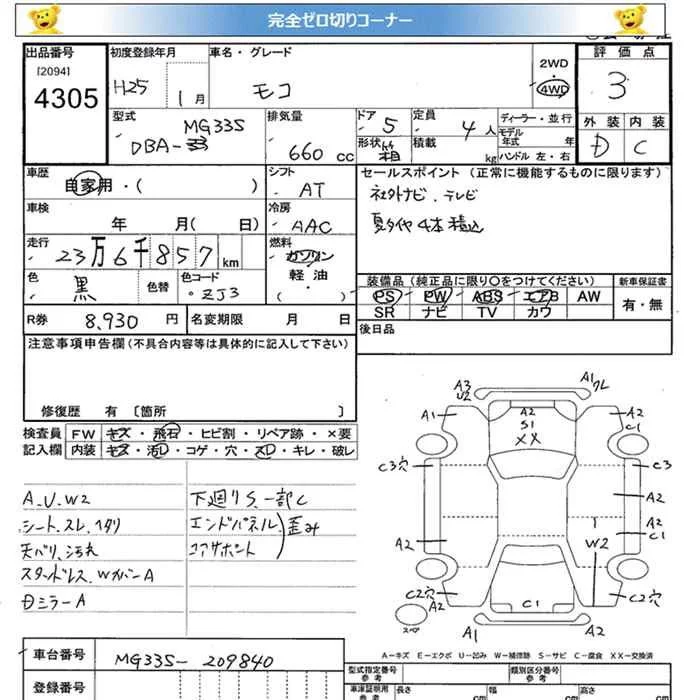 完全ゼロ切りコーナー
出品番号
[2094]
4305
初度登録年月
H25
1月
車名・グレード
モコ
2WD
・
4WD
評価点
3
外装 内装
D C
型式
MG33S
DBA-
排気量
660 cc
ドア
5
形状
箱
定員
4人
積載
kg
ディーラー・並行
モデル年式 年
ハンドル 左・右
車歴
自家用・( )
シフト
AT
セールスポイント (正常に機能するものに限ります)
社外ナビ、テレビ
夏タイヤ 4本積込
車検
年 月( 日)
冷房
AAC
走行
23万6千857km
燃料
ガソリン
軽油・
( )
色
黒
色替
色コード
ZJ3
装備品(純正品に限り○をつけてください)
新車保証書
PS PW ABS エアB AW
SR ナビ TV カワ
有・無
R券 8,930 円
名変期限 月 日
後日品
注意事項申告欄(不具合内容等は具体的に記入して下さい)
修復歴 有 〔箇所 〕
検査員 FW キズ・飛石・ヒビ割・リペア跡・×要
記入欄 内装 キズ・汚レ・コゲ・穴・スレ・キレ・破レ
A.U.W2
シート.スレ.ヘタリ
天バリ、汚れ
スタッドレス.WカバーA
DミラーA
下廻りS.一部C
エンドパネル
コアサポート
歪み
A3
U2
A1 ワレ
A1
A2
S1
XX
A2
C1
C3穴
C3
A2
A2
C1
A2
W2
C2穴
A2
C1
C2穴
スペア
A1
A2
A-キズ E-エクボ U-凹み W-補修跡 S-サビ C-腐食 XX-交換済
車台番号
MG33S-209840
登録番号
型式指定番号
参考
類別区分番号
参考
車庫証明用
参考
長さ cm
幅 cm
高さ cm